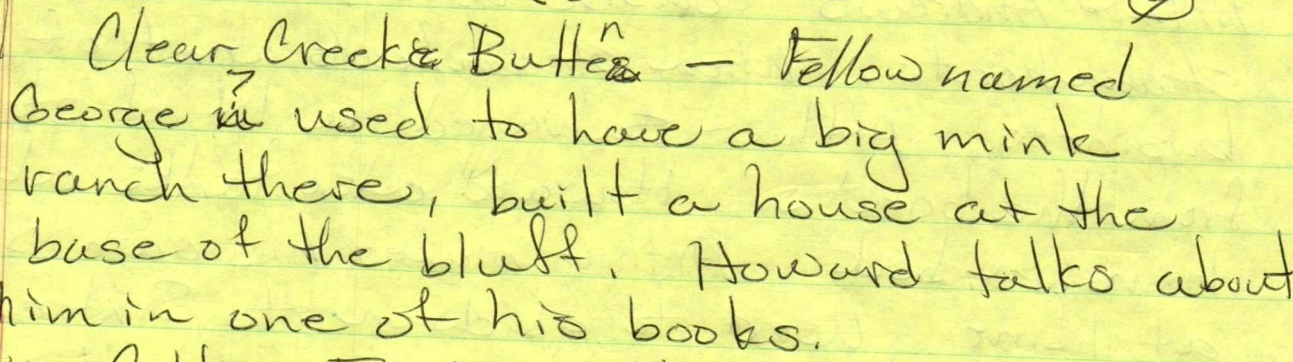 Clear Creek & Butte – Fellow named
George ? used to have a big mink
ranch there, built a house at the
base of the bluff. Howard talks about
him in one of his books.